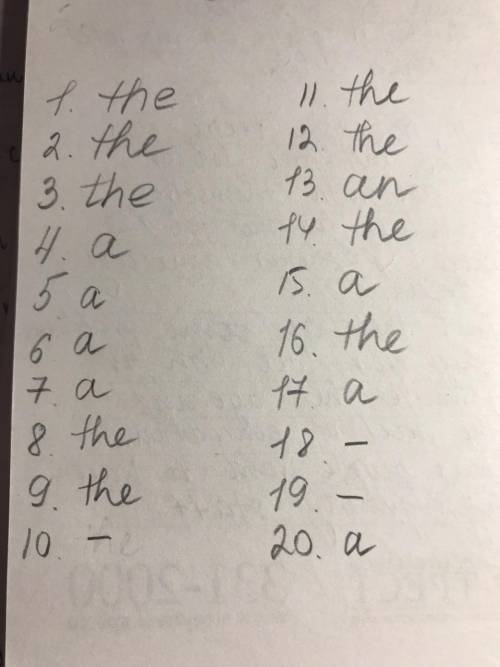 1. the
2. the
3. the
4. a
5 a
6 a
7. a
8. the
9. the
10. –
11. the
12. the
13. an
14. the
15. a
16. the
17. a
18. –
19. –
20. a
331-2000